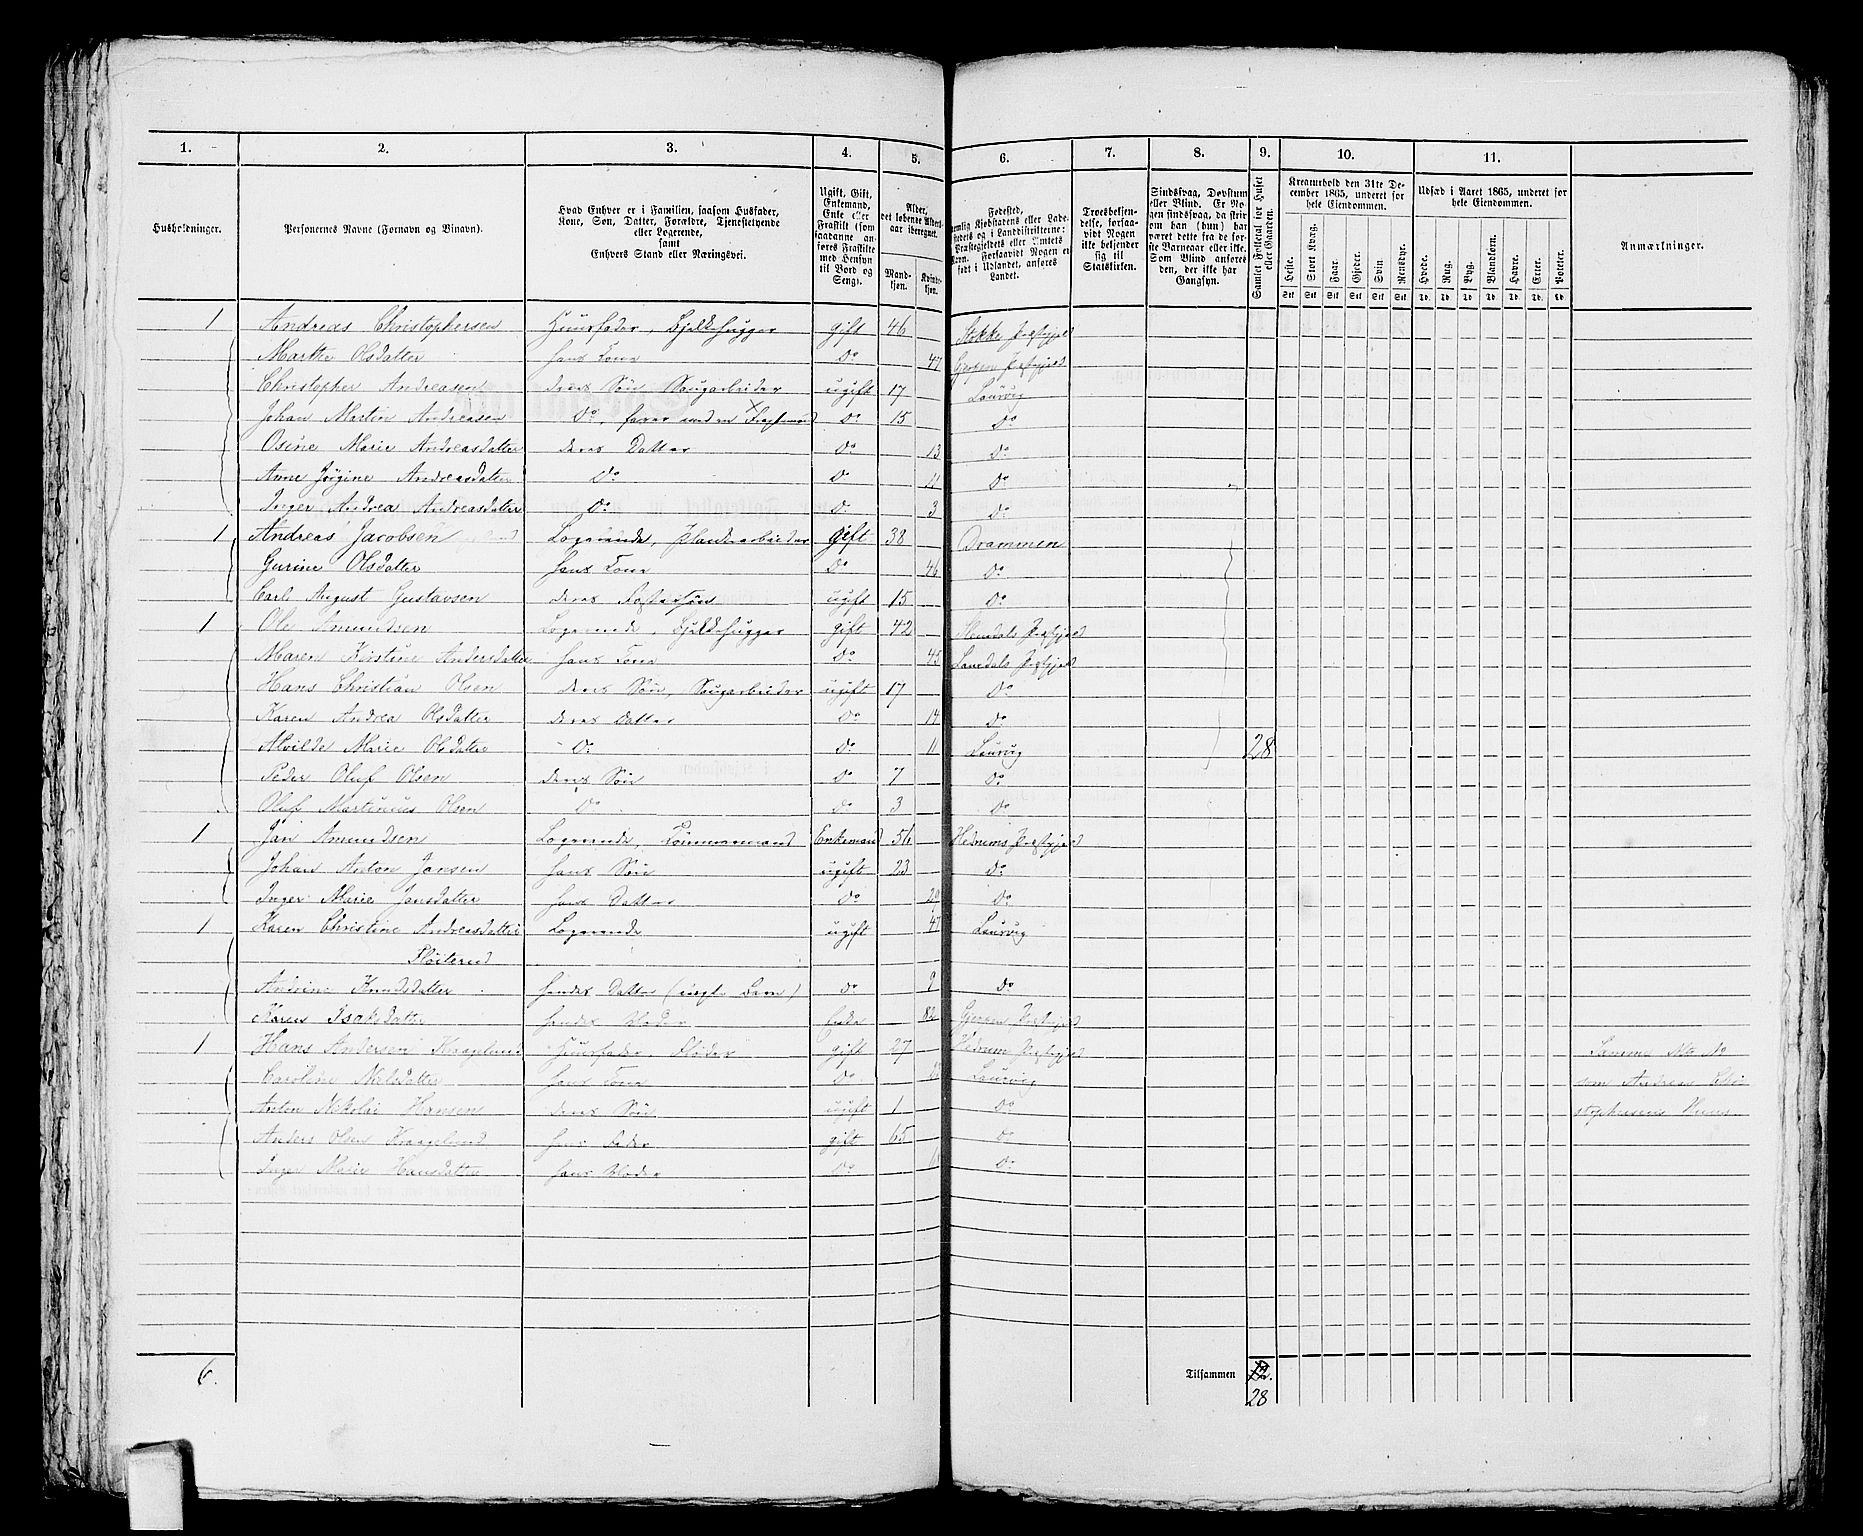 1. 2. 3. 4. 5. 6. 7. 8. 9. 10. 11.
Husholdninger.
Personernes Navne (Fornavn og Binavn).
Hvad Enhver er i Familien, saasom Husfader,
Kone, Søn, Datter, Forældre, Tjenestetyende
eller Logerende,
samt
Enhvers Stand eller Næringsvei.
Ugift, Gift,
Enkemand,
Enke eller
Fraskilt (som
saadanne an-
føres Fraskilte
med Hensyn
til Bord og
Seng).
Alder,
det løbende Alders-
aar iberegnet.
Mand-
kjøn.
Kvinde-
kjøn.
Fødested,
nemlig Kjøbstadens eller Lade-
stedets og i Landdistrikterne:
Præstegjeldets eller Amtets
Navn. Forsaavidt Nogen er
født i Udlandet, anføres
Landet.
Troesbekjen-
delse, forsaa-
vidt Nogen
ikke bekjender
sig til
Statskirken.
Sindssvag, Døvstum
eller Blind. Er No-
gen sindssvag, da skri-
ves om han (hun) har
været dette fra de før-
ste Barneaar eller ikke.
Som Blind anføres
den, der ikke har
Gangsyn.
Samlet Folketal for Huset
eller Gaarden.
Kreaturhold den 31te De-
cember 1865, underet for
hele Eiendommen.
Heste. Stort Kvæg. Faar. Gjeder. Svin. Rensdyr.
Stk Stk Stk Stk Stk Stk
Udsæd i Aaret 1865, underet for
hele Eiendommen.
Hvede. Rug. Byg. Blandkorn. Havre. Erter. Poteter.
Td. Td. Td. Td. Td. Td. Td.
Anmærkninger.
1 Andreas Christophersen Huusfader, Bjelkehugger gift 46 Stokke Præstgjeld
Marthe Olsdatter hans Kone Do 47 Gjerpen Præstgjeld
Christopher Andreasen deres Søn Saugarbeider ugift 17 Laurvig
Johan Martin Andreasen Do, farer med en Do 15 Do
Osine Marie Andreasdatter deres Datter Do 13 Do
Anne Jørgine Andreasdatter Do Do 11 Do
Inger Andrea Andreasdatter Do Do 3 Do
1 Andreas Jacobsen Logerende, Plankearbeider gift 38 Drammen
Gurine Olsdatter hans Kone Do 46 Do
Carl August Gustavsen deres Fostersøn ugift 15 Do
1 Ole Amundsen Logerende, Bjelkehugger gift 42 Præstgjeld
Maren Kristine Andersdatter hans Kone Do 45 Præstgjeld
Hans Christian Olsen deres Søn, Saugarbeider ugift 17 Do
Karen Andrea Olsdatter deres Datter Do 14 Do
Alvilde Marie Olsdatter Do Do 11 Laurvig 28
Peder Oluf Olsen deres Søn Do 7 Do
Oluf Martinius Olsen Do Do 3 Do
1 Jan Amundsen Logerende, Tømmermand Enkemand 56 Hedrums Præstgjeld
Johan Anton Jansen hans Søn ugift 23 Do
Inger Marie Jansdatter hans Datter Do 20 Do
1 Karen Christine Andreasdatter Logerende ugift 47 Laurvig
Fløiterud
Knudsdatter hendes Datter (uægte Barn) Do 9 Do
Karen Isaksdatter hendes Moder Enke 82 Gjerpen Præstgjeld
1 Hans Andersen Kraagelund Huusfader, Fløder gift 27 Hedrum Præstgjeld Samme Mtr No
Caroline Nielsdatter hans Kone Do Laurvig som Andreas Chri-
Anton Nikolai Hansen deres Søn ugift 1 Do stophersens Huus
Anders Olsen Kraagelund hans Fader gift 65 Do
Inger Marie Hansdatter hans Moder Do Do
6. Tilsammen 12.
28